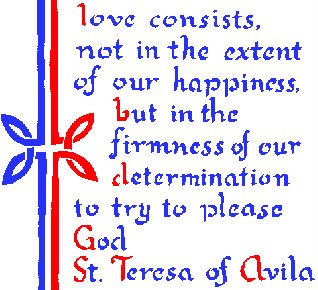 love consists,
not in the extent
of our happiness,
but in the
firmness of our
determination
to try to please
God
St. Teresa of Avila